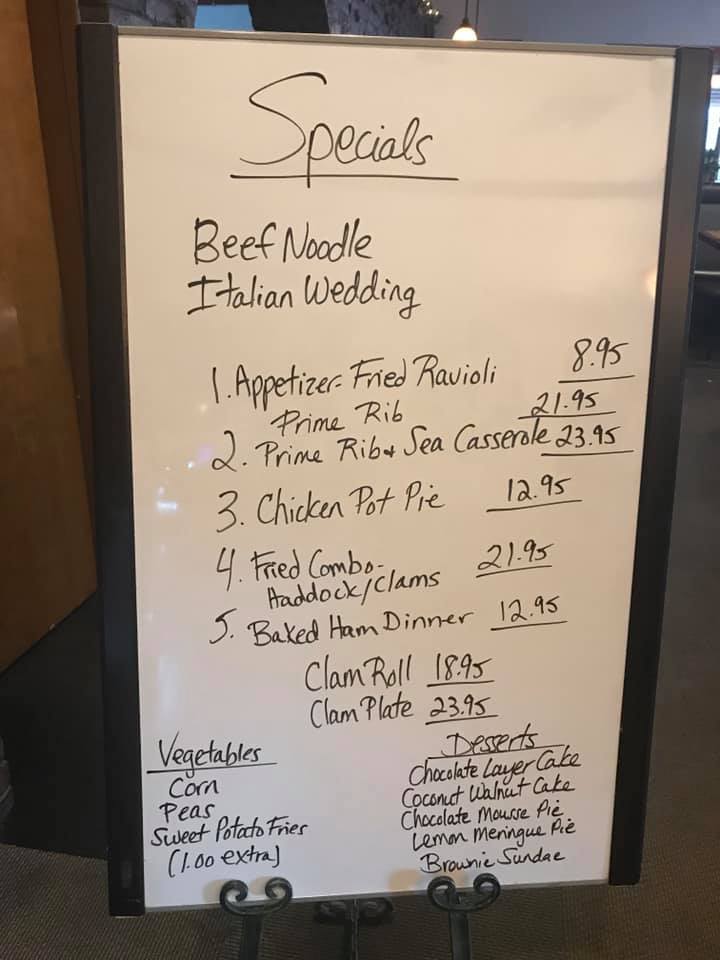 Specials
Beef Noodle
Italian Wedding
1. Appetizer- Fried Ravioli 8.95
Prime Rib 21.95
2. Prime Rib & Sea Casserole 23.95
3. Chicken Pot Pie 12.95
4. Fried Combo- 21.95
Haddock/Clams
5. Baked Ham Dinner 12.95
Clam Roll 18.95
Clam Plate 23.95
Vegetables
Corn
Peas
Sweet Potato Fries
(1.00 extra)
Desserts
Chocolate Layer Cake
Coconut Walnut Cake
Chocolate Mousse Pie
Lemon Meringue Pie
Brownie Sundae